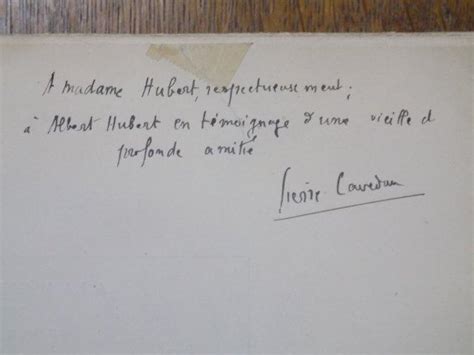 A madame Hubert, respectueusement ;
à Albert Hubert en témoignage d'une vieille et
profonde amitié
Pierre Lavedan